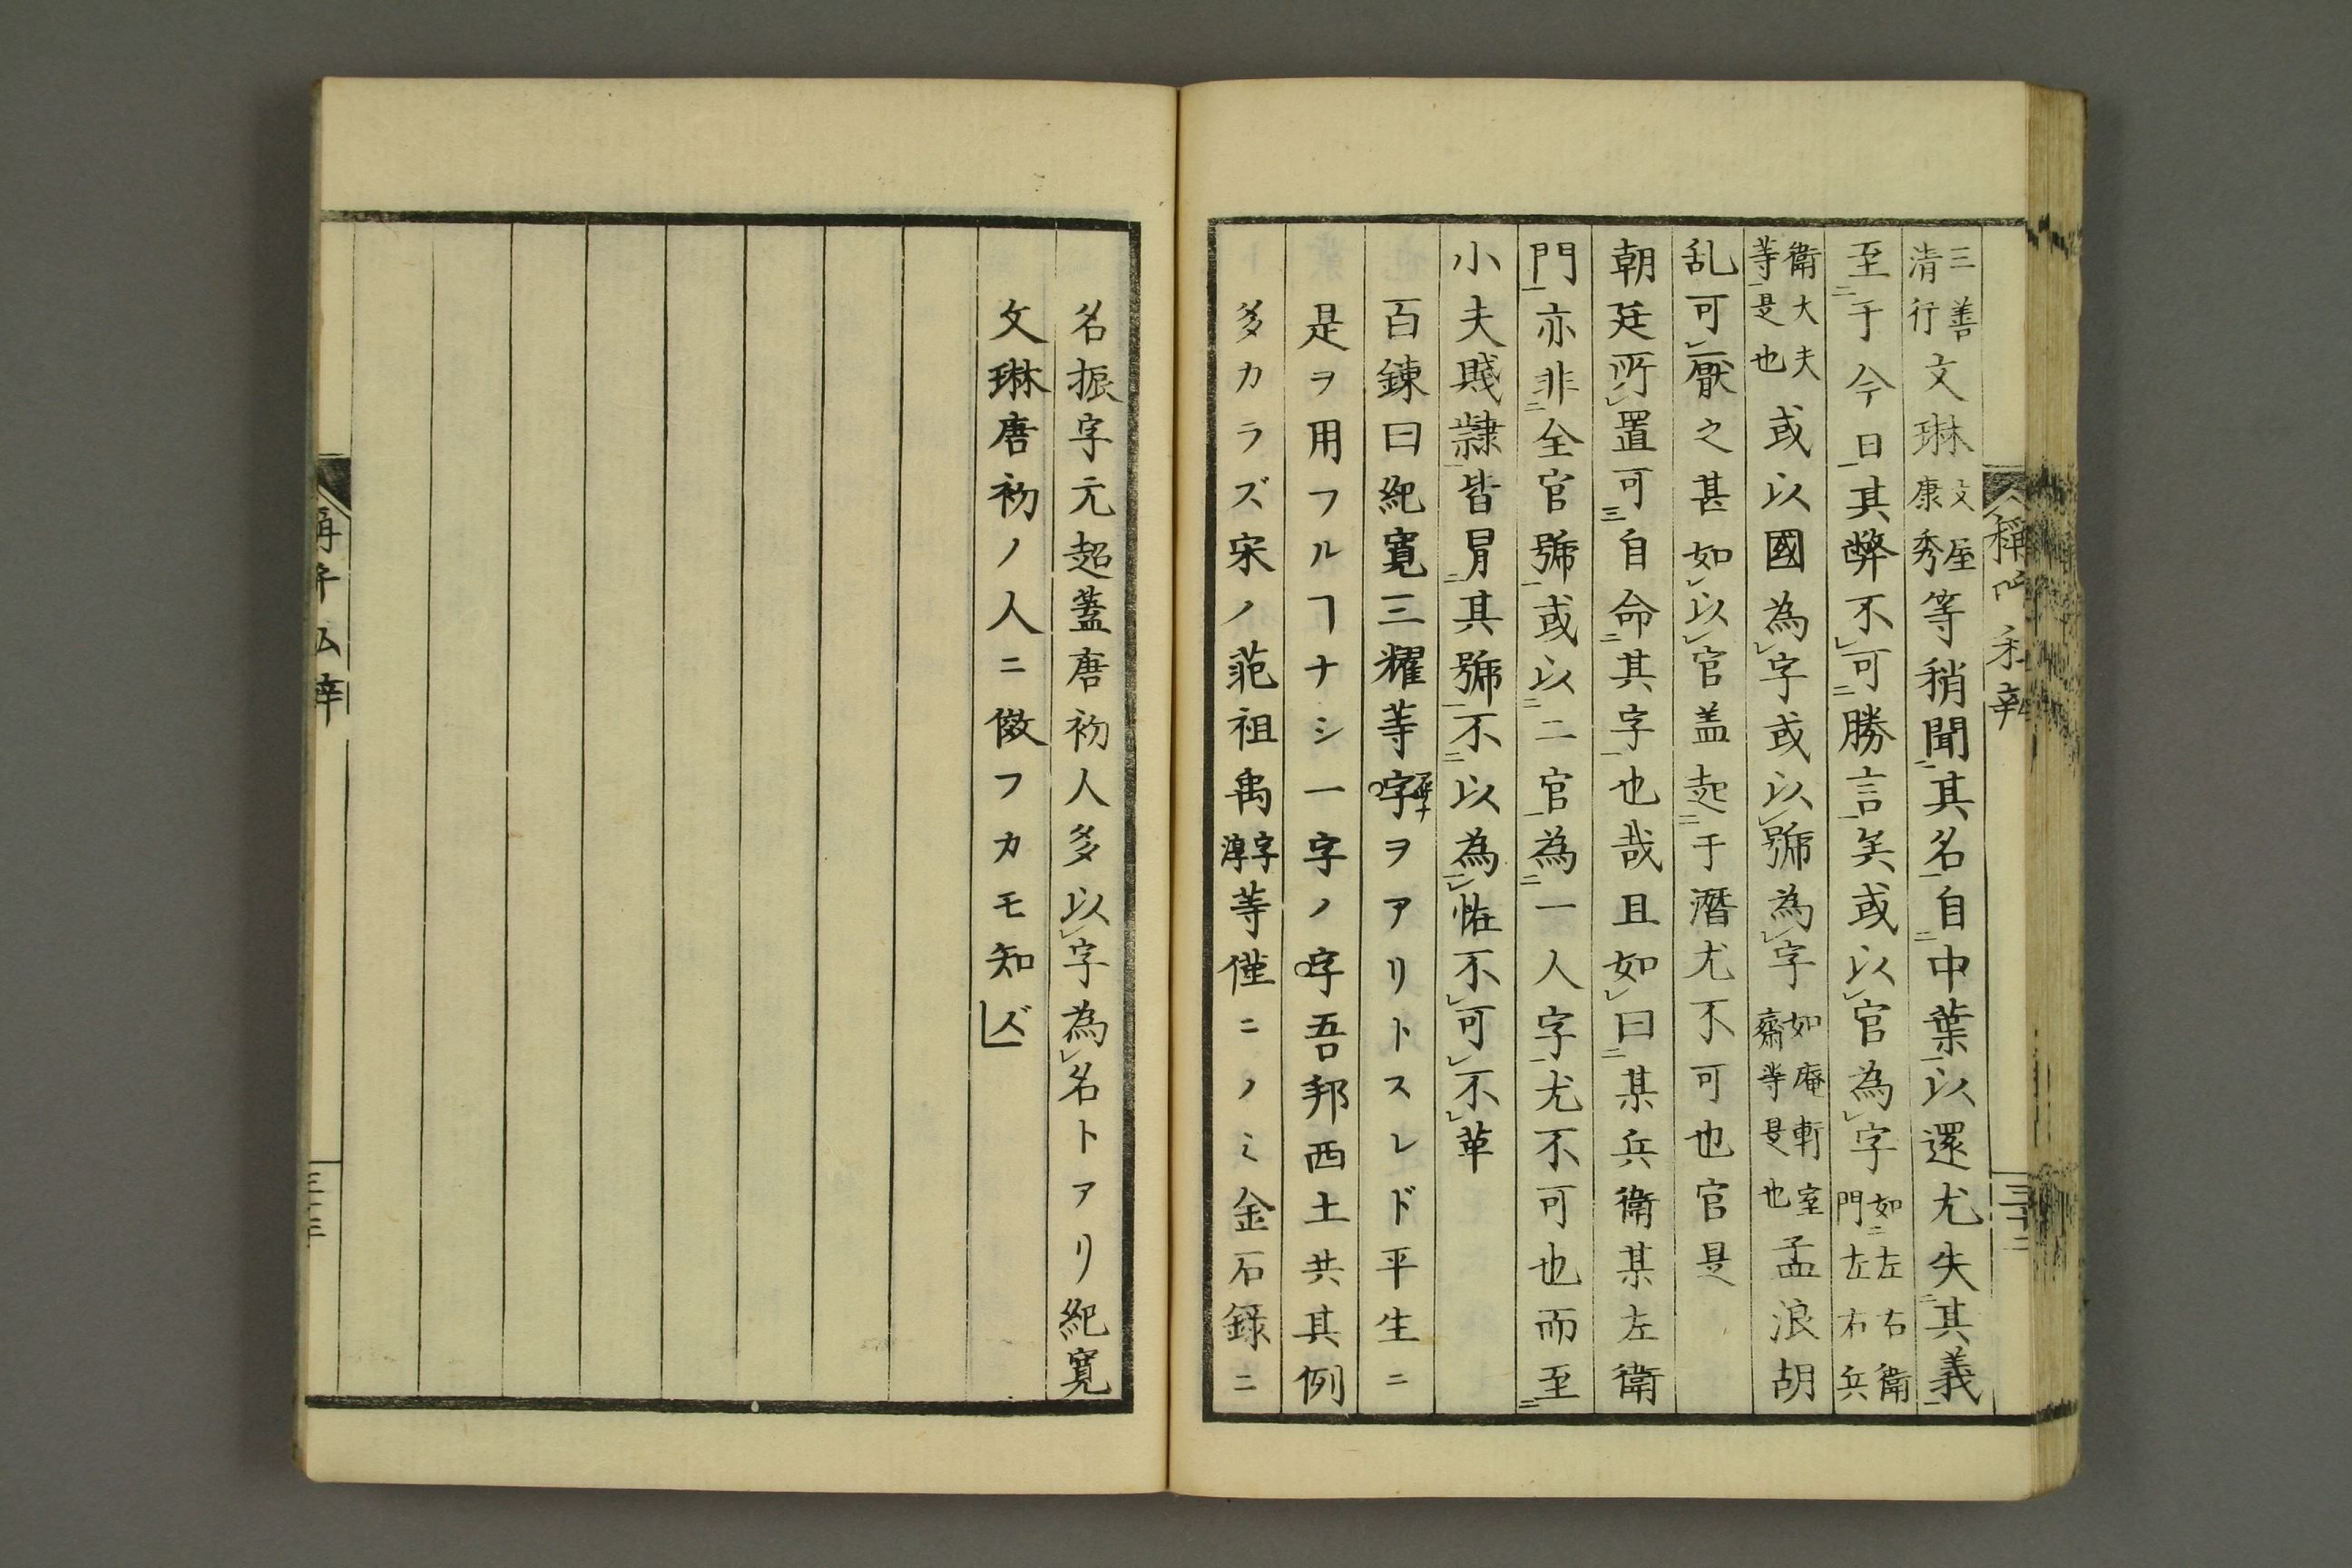 三善清行文琳文屋康秀等稍聞二其名一自二中葉一以還尤失二其義一
至二于今日一其弊不レ可二勝言一矣或以レ官為レ字如二左右衛門左右兵
衛大夫等一是也或以國為レ字或以レ號為レ字如庵軒室齋等是也孟浪胡
乱可レ厭之甚如レ以レ官盖起二于潛尤不可也官是
朝廷所レ置可三自命二其字一也哉且如レ曰二某兵衛某左衛
門一亦非二全官號一或以二二官一為二一人字一尤不可也而至二
小夫賤隷一皆冐二其號一不二以為一レ恠不レ可レ不レ革
百錬曰紀寛三耀等字ヲアリトスレド平生ニ
是ヲ用フルヿナシ一字ノ字吾邦西土共其例
多カラズ宋ノ范祖禹字淳等僅ニノミ金石録ニ
名振字元超蓋唐初人多以レ字為レ名トアリ紀寛
文琳唐初ノ人ニ倣フカモ知ズ
三十二